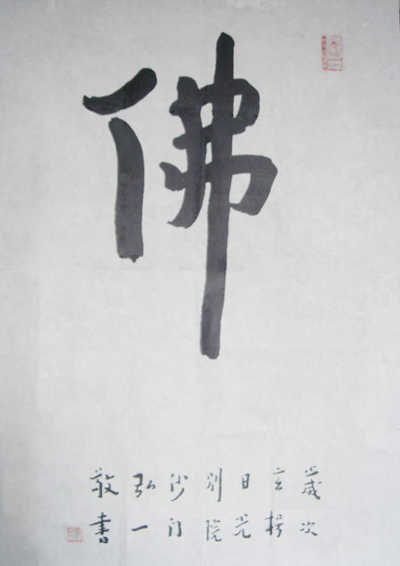 佛
歲次
玄枵
日光
別院
沙門
弘一
敬書